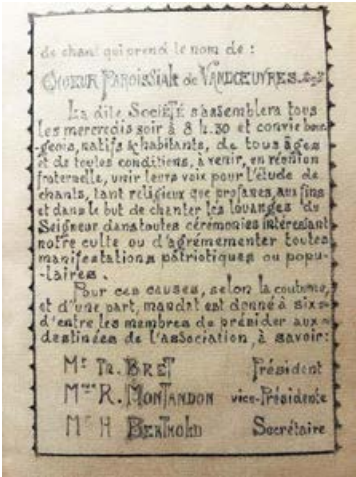 de chant qui prend le nom de :
CHOEUR PAROISSIAL de VANDŒUVRES
La dite SOCIÉTÉ s'assemblera tous
les mercredis soir à 8 h.30 et convie bour-
geois, natifs & habitants, de tous âges
et de toutes conditions, à venir, en réunion
fraternelle, unir leurs voix pour l'étude de
chants, tant religieux que profanes, aux fins
et dans le but de chanter les louanges du
Seigneur dans toutes cérémonies intéressant
notre culte ou d'agrémementer toutes
manifestations patriotiques ou popu-
-laires.
Pour ces causes, selon la coutume,
et d'une part, mandat est donné à six
d'entre les membres de présider aux
destinées de l'association, à savoir:
Mr TH. BRET Président
Mme R. MONTANDON vice-Présidente
Mr H BERTHOLD Secrétaire